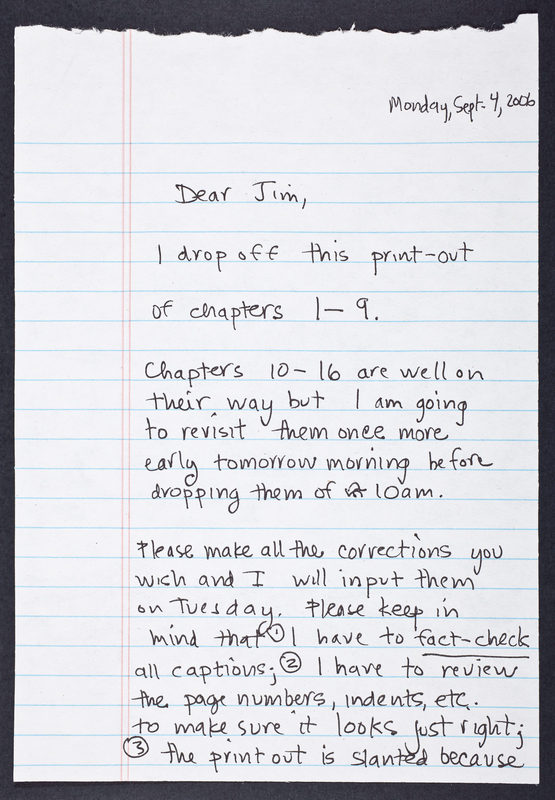 Monday, Sept. 4, 2006
Dear Jim,
I drop off this print-out
of chapters 1-9.
Chapters 10-16 are well on
their way but I am going
to revisit them once more
early tomorrow morning before
dropping them of at 10am.
Please make all the corrections you
wish and I will input them
on Tuesday. Please keep in
mind that ① I have to fact-check
all captions; ② I have to review
the page numbers, indents, etc.
to make sure it looks just right;
③ the print out is slanted because